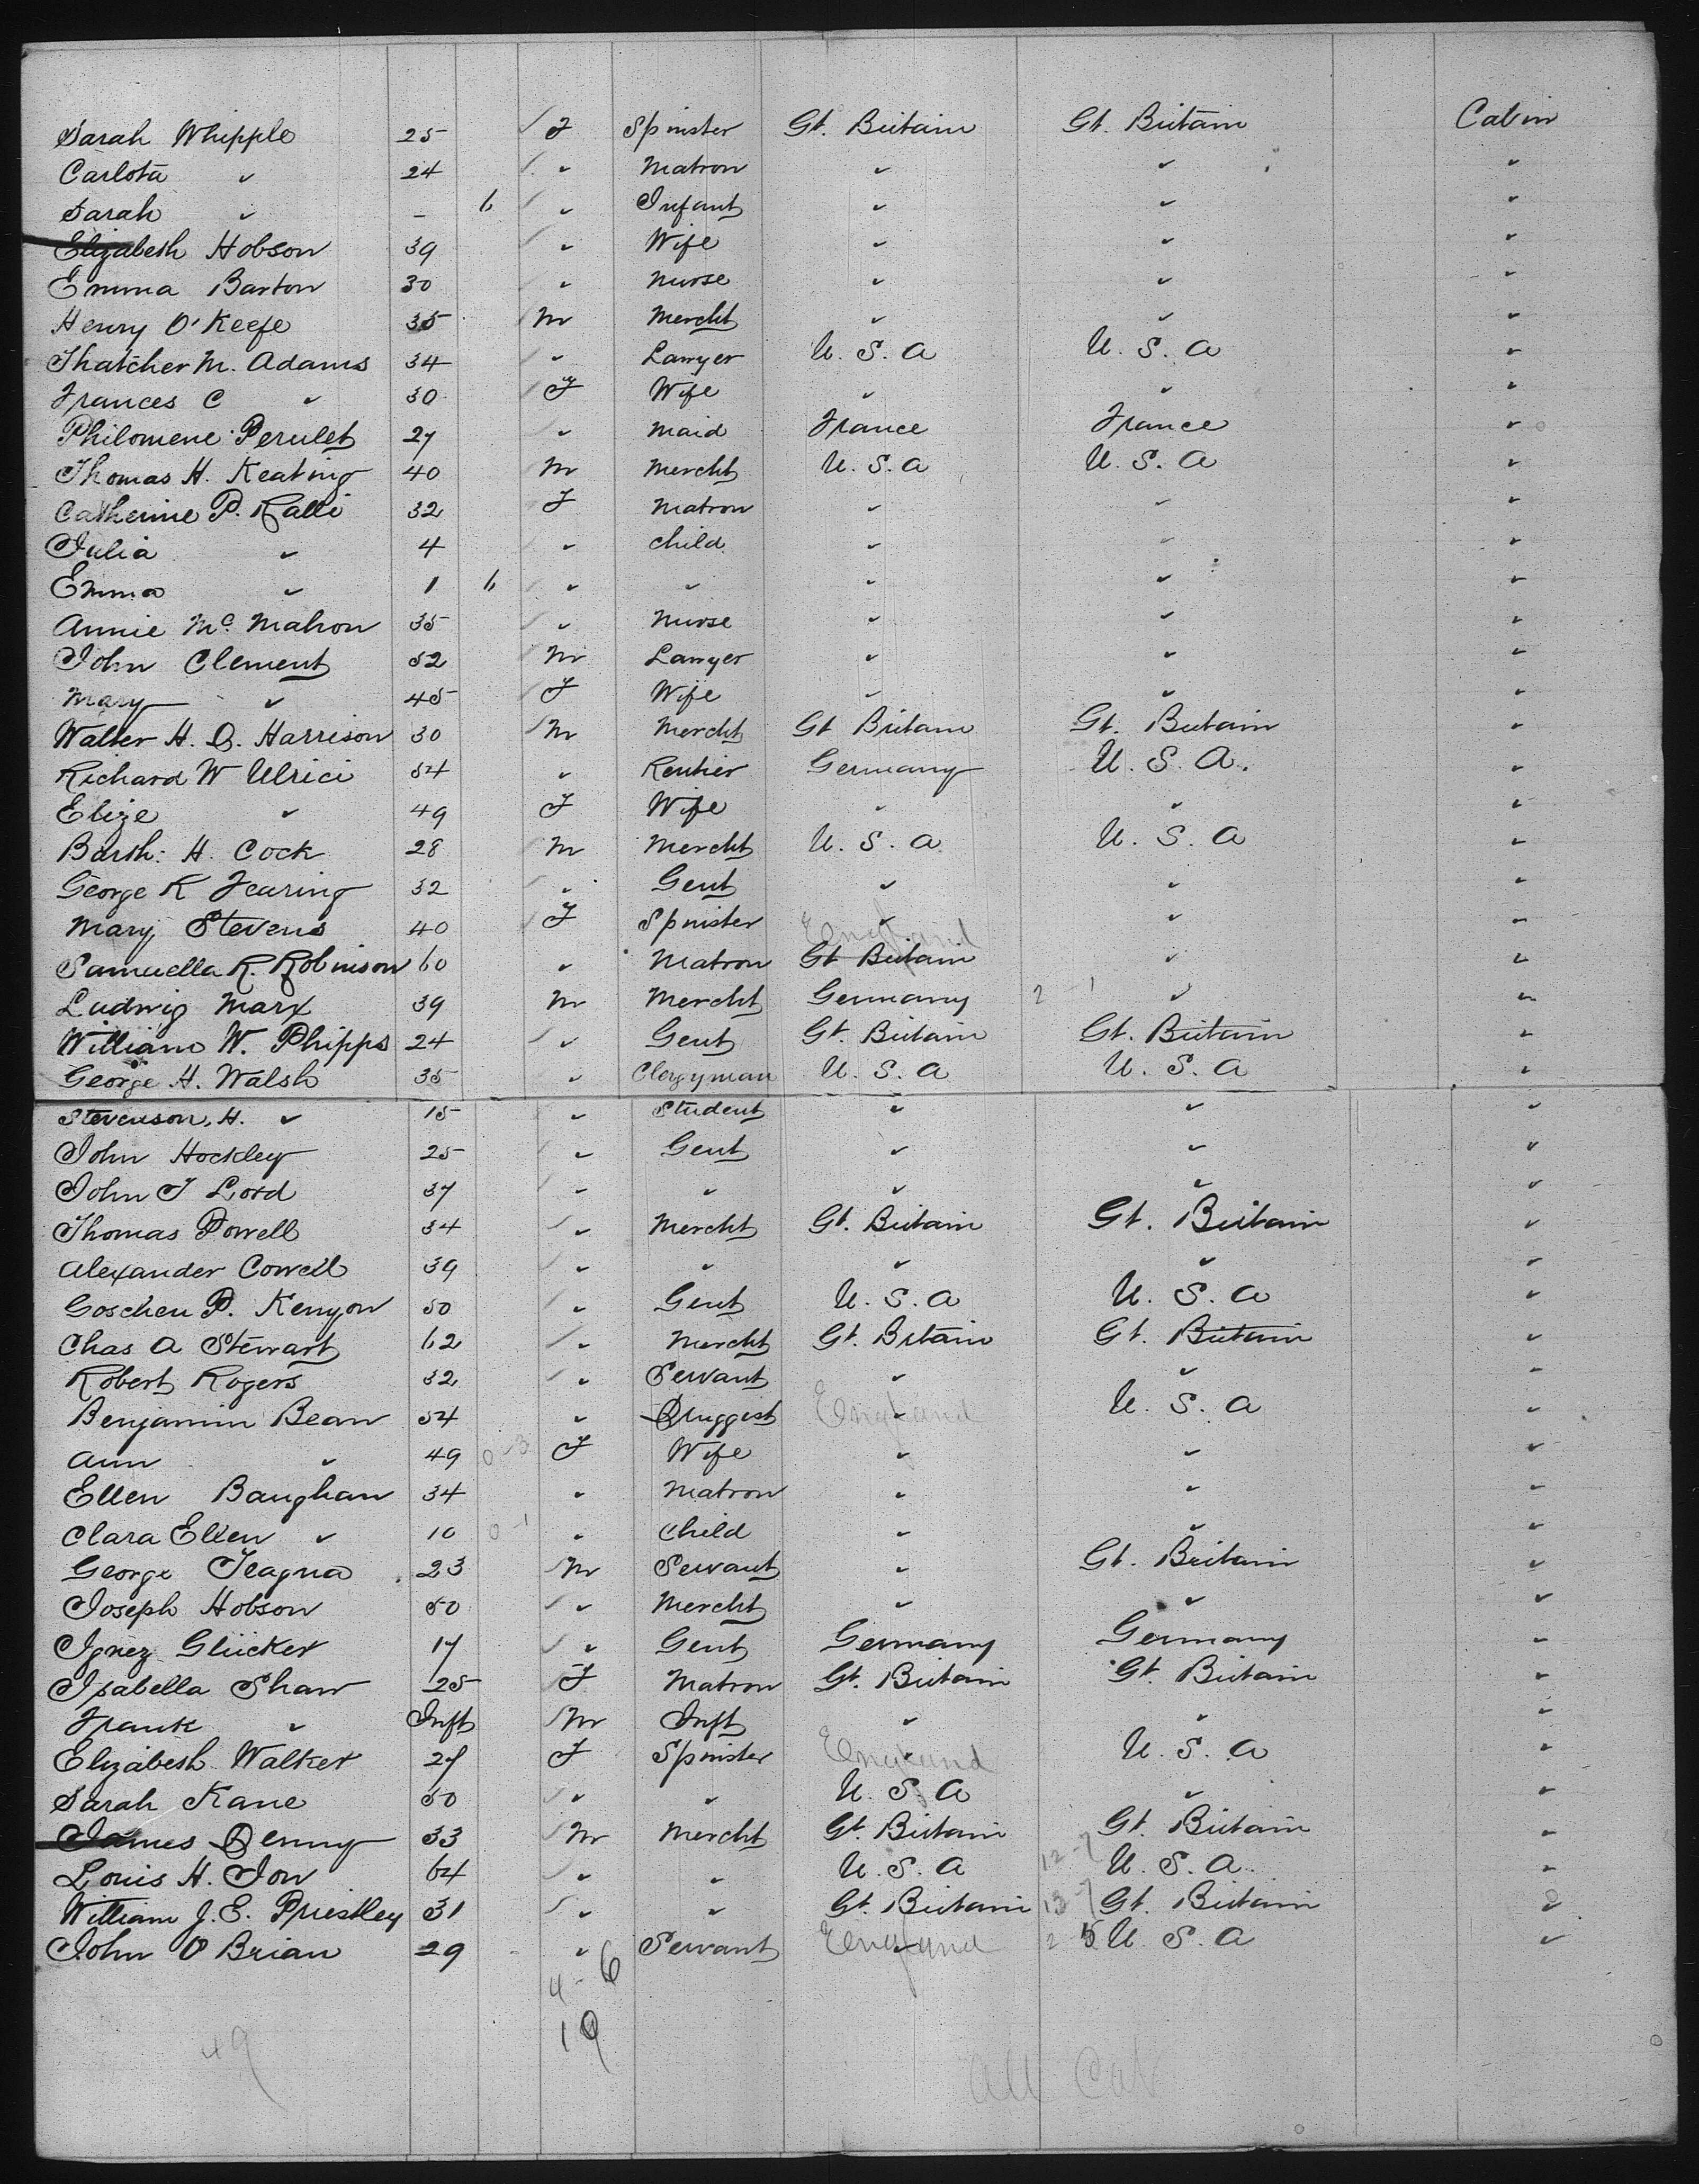 Sarah Whipple 25 F Spinster Gt. Britain Gt. Britain Cabin
Carlota " 24 " Matron " " "
Sarah " - 6 " Infant " " "
Elizabeth Hobson 39 " Wife " " "
Emma Barton 30 " Nurse " " "
Henry O'Keefe 35 M Mercht " " "
Thatcher M. Adams 34 " Lawyer U. S. A U. S. A "
Frances C " 30 F Wife " " "
Philomene Perulet 27 " Maid France France "
Thomas H. Keating 40 M Mercht U. S. A U. S. A "
Catherine P. Ralli 32 F Matron " " "
Julia " 4 " Child " " "
Emma " 1 6 " " " " "
Annie Mc. Mahon 35 " Nurse " " "
John Clement 52 M Lawyer " " "
Mary " 45 F Wife " " "
Walter H. B. Harrison 30 M Mercht Gt Britain Gt. Britain "
Richard W Ulrici 54 " Rentier Germany U. S. A. "
Elize " 49 F Wife " " "
Barth: H. Cock 28 M Mercht U. S. A U. S. A "
George R Fearing 32 " Gent " " "
Mary Stevens 40 F Spinster " " "
England
Samuella R. Robinson 60 " Matron Gt Britain " "
Ludwig Marx 39 M Mercht Germany " "
William W. Phipps 24 " Gent Gt. Britain Gt. Britain "
George H. Walsh 35 " Clergyman U. S. A U. S. A "
Stevenson, H. " 15 " Student " " "
John Hockley 25 " Gent " " "
John T Lord 37 " " " " "
Thomas Powell 34 " Mercht Gt. Britain Gt. Britain "
Alexander Cowell 39 " " " " "
Goschen P. Kenyon 50 " Gent U. S. A U. S. A "
Chas A Stewart 62 " Mercht Gt. Britain Gt. Britain "
Robert Rogers 32 " Servant " " "
Benjamin Bean 54 " Druggist England " U. S. A "
Ann " 49 0-3 F Wife " " "
Ellen Baughan 34 " Matron " " "
Clara Ellen " 10 0-1 " Child " " "
George Teagua 23 M Servant " Gt. Britain "
Joseph Hobson 50 " Mercht " " "
Ignez Glücker 17 " Gent Germany Germany "
Isabella Shaw 25 F Matron Gt. Britain Gt. Britain "
Frank " Inft M Inft " " "
Elizabeth Walker 27 F Spinster England " U. S. A "
Sarah Kane 50 " " U. S. A " "
James Denny 33 M Mercht Gt. Britain Gt. Britain "
Louis H. Ion 64 " " U. S. A 12-7 U. S. A. "
William J. E. Priestley 31 " " Gt. Britain 13-7 Gt. Britain "
John O Brian 29 " Servant England " 2 5 U. S. A "
4-6
19
49
All Cab